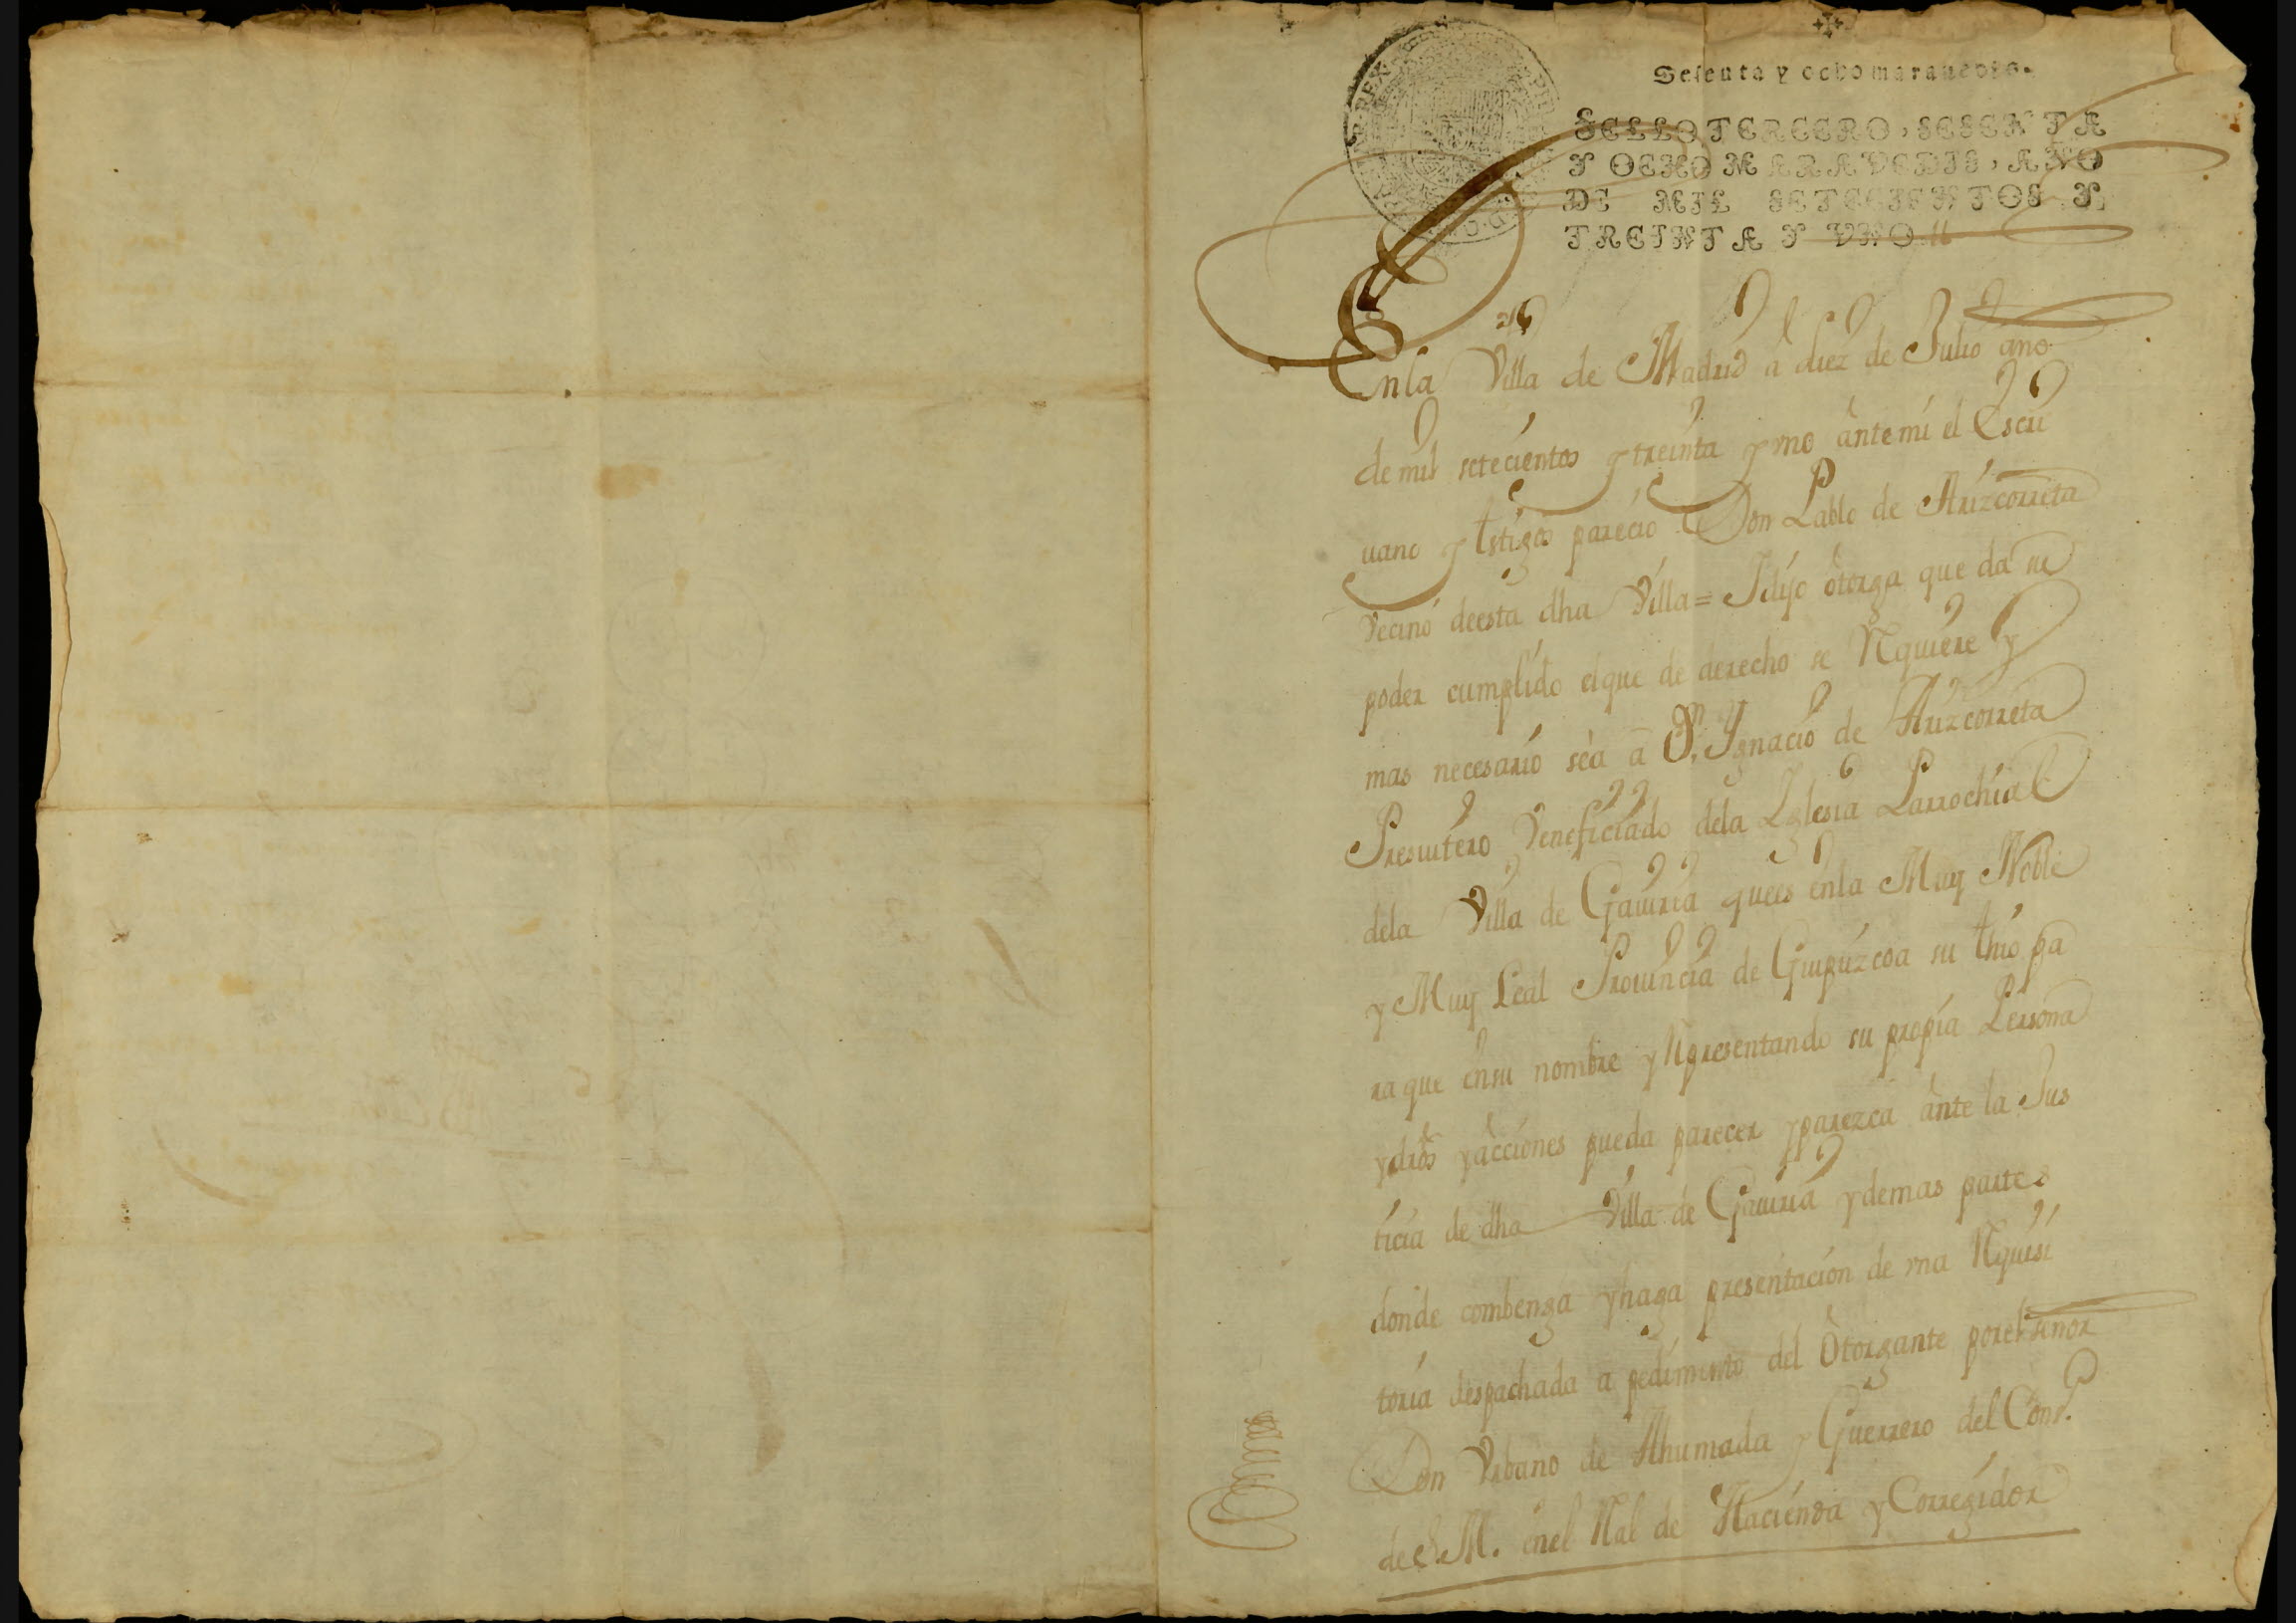 Sesenta y ocho marauedis.
SELLO TERCERO, SESENTA
Y OCHO MARAVEDIS, AÑO
DE MIL SETECIENTOS Y
TREINTA Y VNO
En la Villa de Madrid a diez de Julio año
de mil setecientos y treinta y vno ante mi el Escri
uano y tstigos parecio Don Pablo de Arizcorreta
Vecino de esta dha Villa = I dijo otorga que da su
poder cumplido el que de derecho se Rquiere y
mas necesario sea a Dn. Ygnacio de Arizcorreta
Presuitero Veneficiado de la Yglesia Parrochial
de la Villa de Gauiria que es en la Muy Noble
y Muy Leal Prouincia de Guipuzcoa su thio pa
ra que en su nombre y Rpresentando su propia Persona
y dros y acciones pueda parecer y parezca ante la Jus
ticia de dha Villa de Gauiria y demas partes
donde combenga y haga presentacion de vna Rquisi
toria despachada a pedimento del Otorgante por el señor
Don Vrbano de Ahumada y Guerrero del Cons.
de S.M. en el Ral de Hacienda y Corregidor